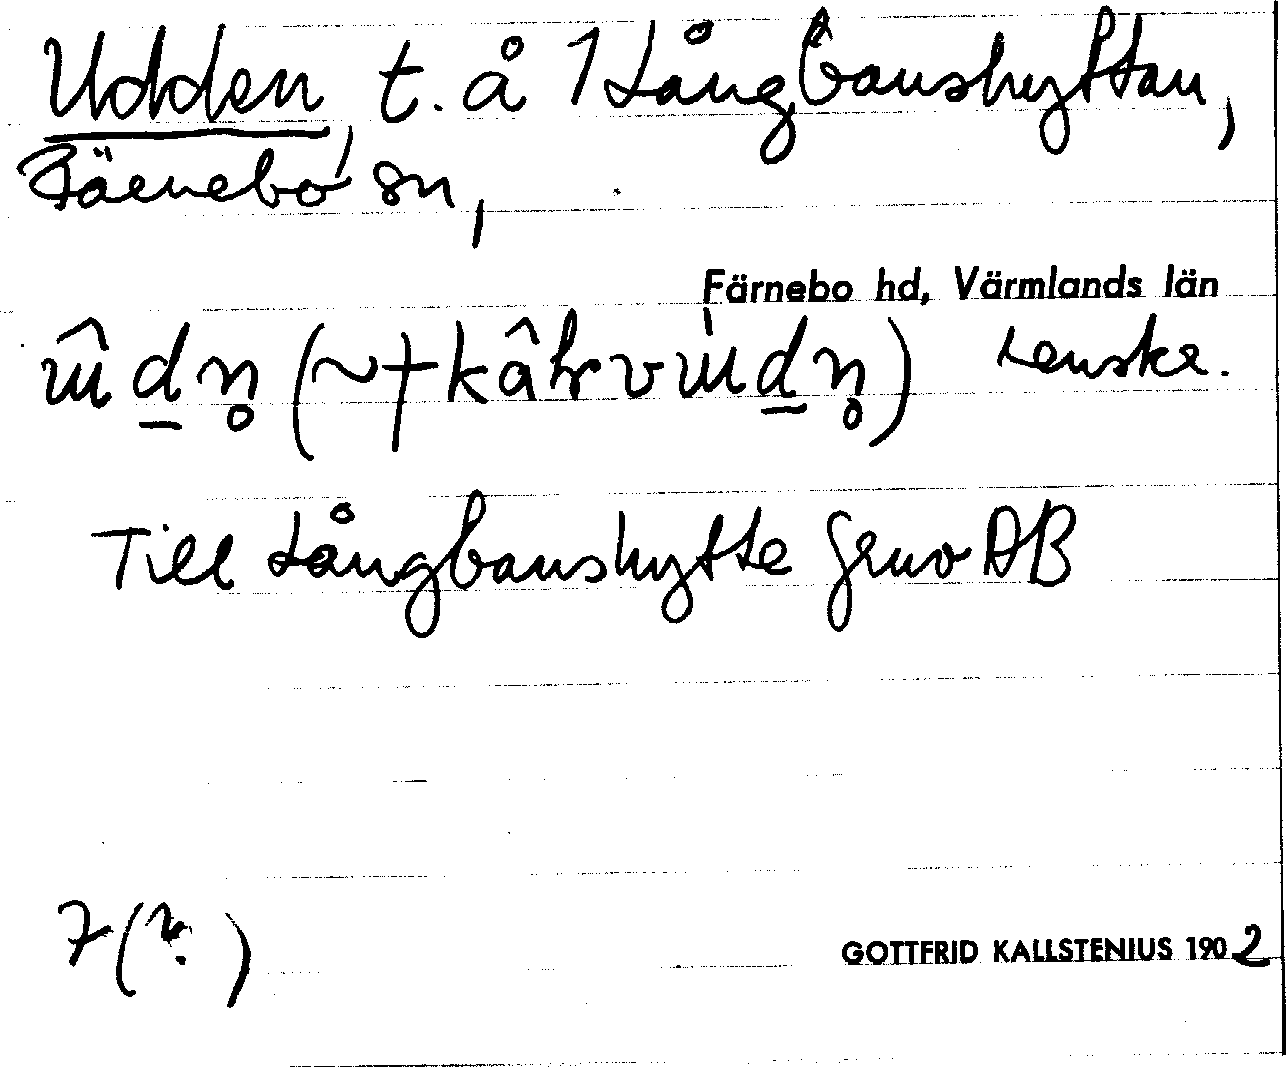 Udden, t. å 1 Långbanshyttan,
Färnebo sn,
Färnebo hd, Värmlands län
Till Långbanshytte Gruv AB
7 (?)
GOTTFRID KALLSTENIUS 1902